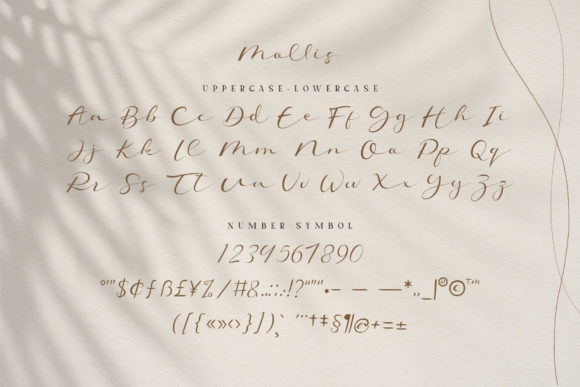 Mallis
UPPERCASE · LOWERCASE
Aa Bb Cc Dd Ee Ff Gg Hh Ii
Jj Kk Ll Mm Nn Oo Pp Qq
Rr Ss Tt Uu Vv Ww Xx Yy Zz
NUMBER · SYMBOL
1234567890
°"'"$¢ƒß£¥%/#&...:;:!?"""•– — —*,,_|®©™
([{«»‹›}])¸` ´¨˝†‡§¶@+=±